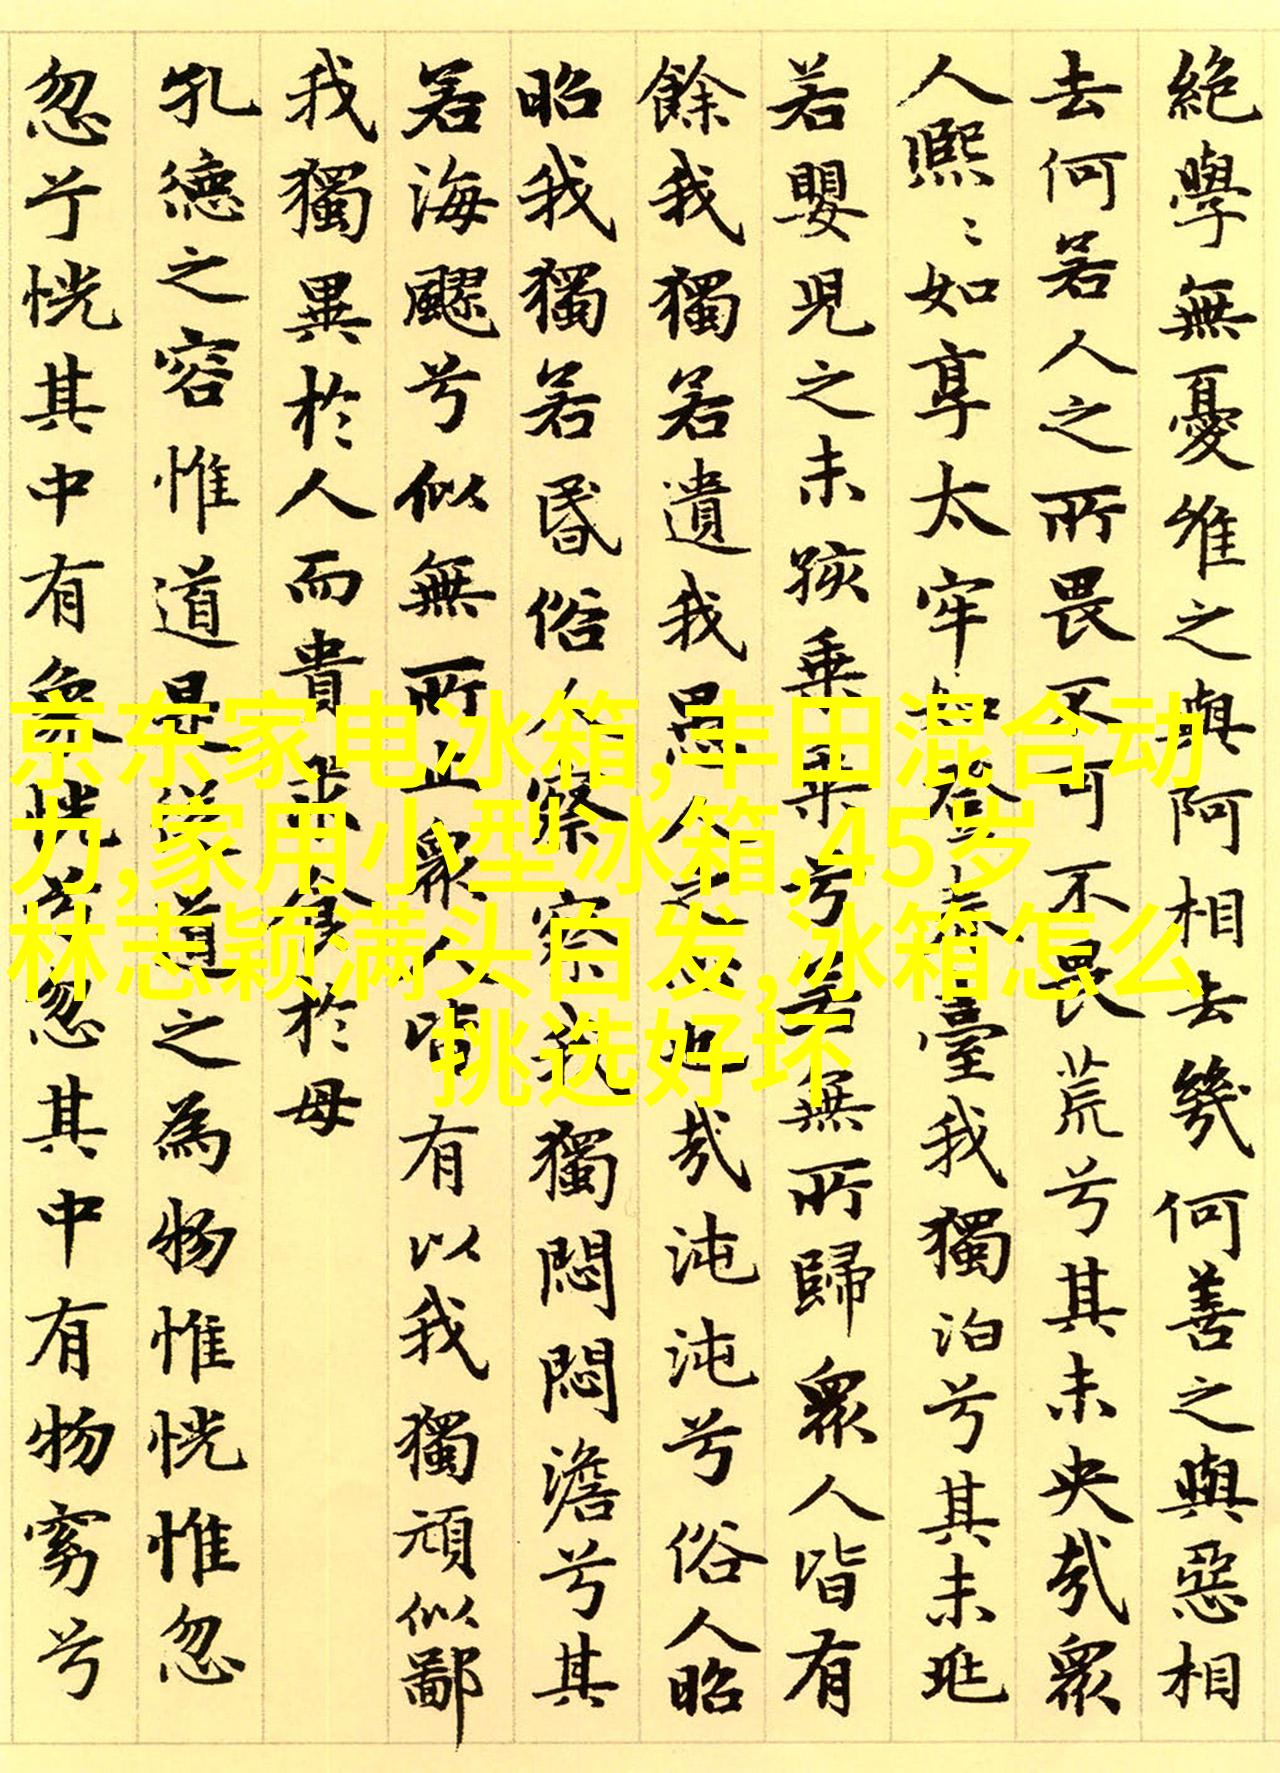 絶學無憂唯之與阿相去幾何善之與惡相
去何若人之所畏不可不畏荒兮其未央哉眾
人熙〻如享太牢如登春臺我獨泊兮其未兆
若嬰兒之未孩乗乗兮若無所歸眾人皆有
餘我獨若遺我愚人之心也哉沌沌兮俗人昭
昭我獨若昏俗人察察我獨悶悶澹兮其
若海飂兮似無所止眾人皆有以我獨頑似鄙
我獨異於人而貴求食於母
孔德之容惟道是從道之為物惟恍惟忽
忽兮恍其中有象恍兮忽其中有物窈兮
京东家电冰箱,丰田混合动
力,家用小型冰箱,45岁
林志颖满头白发,冰箱怎么
挑选好坏